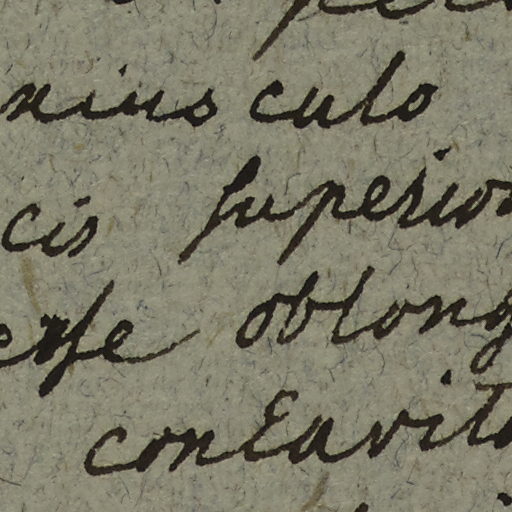 xiusculo
cis superio
erse oblong
concavita